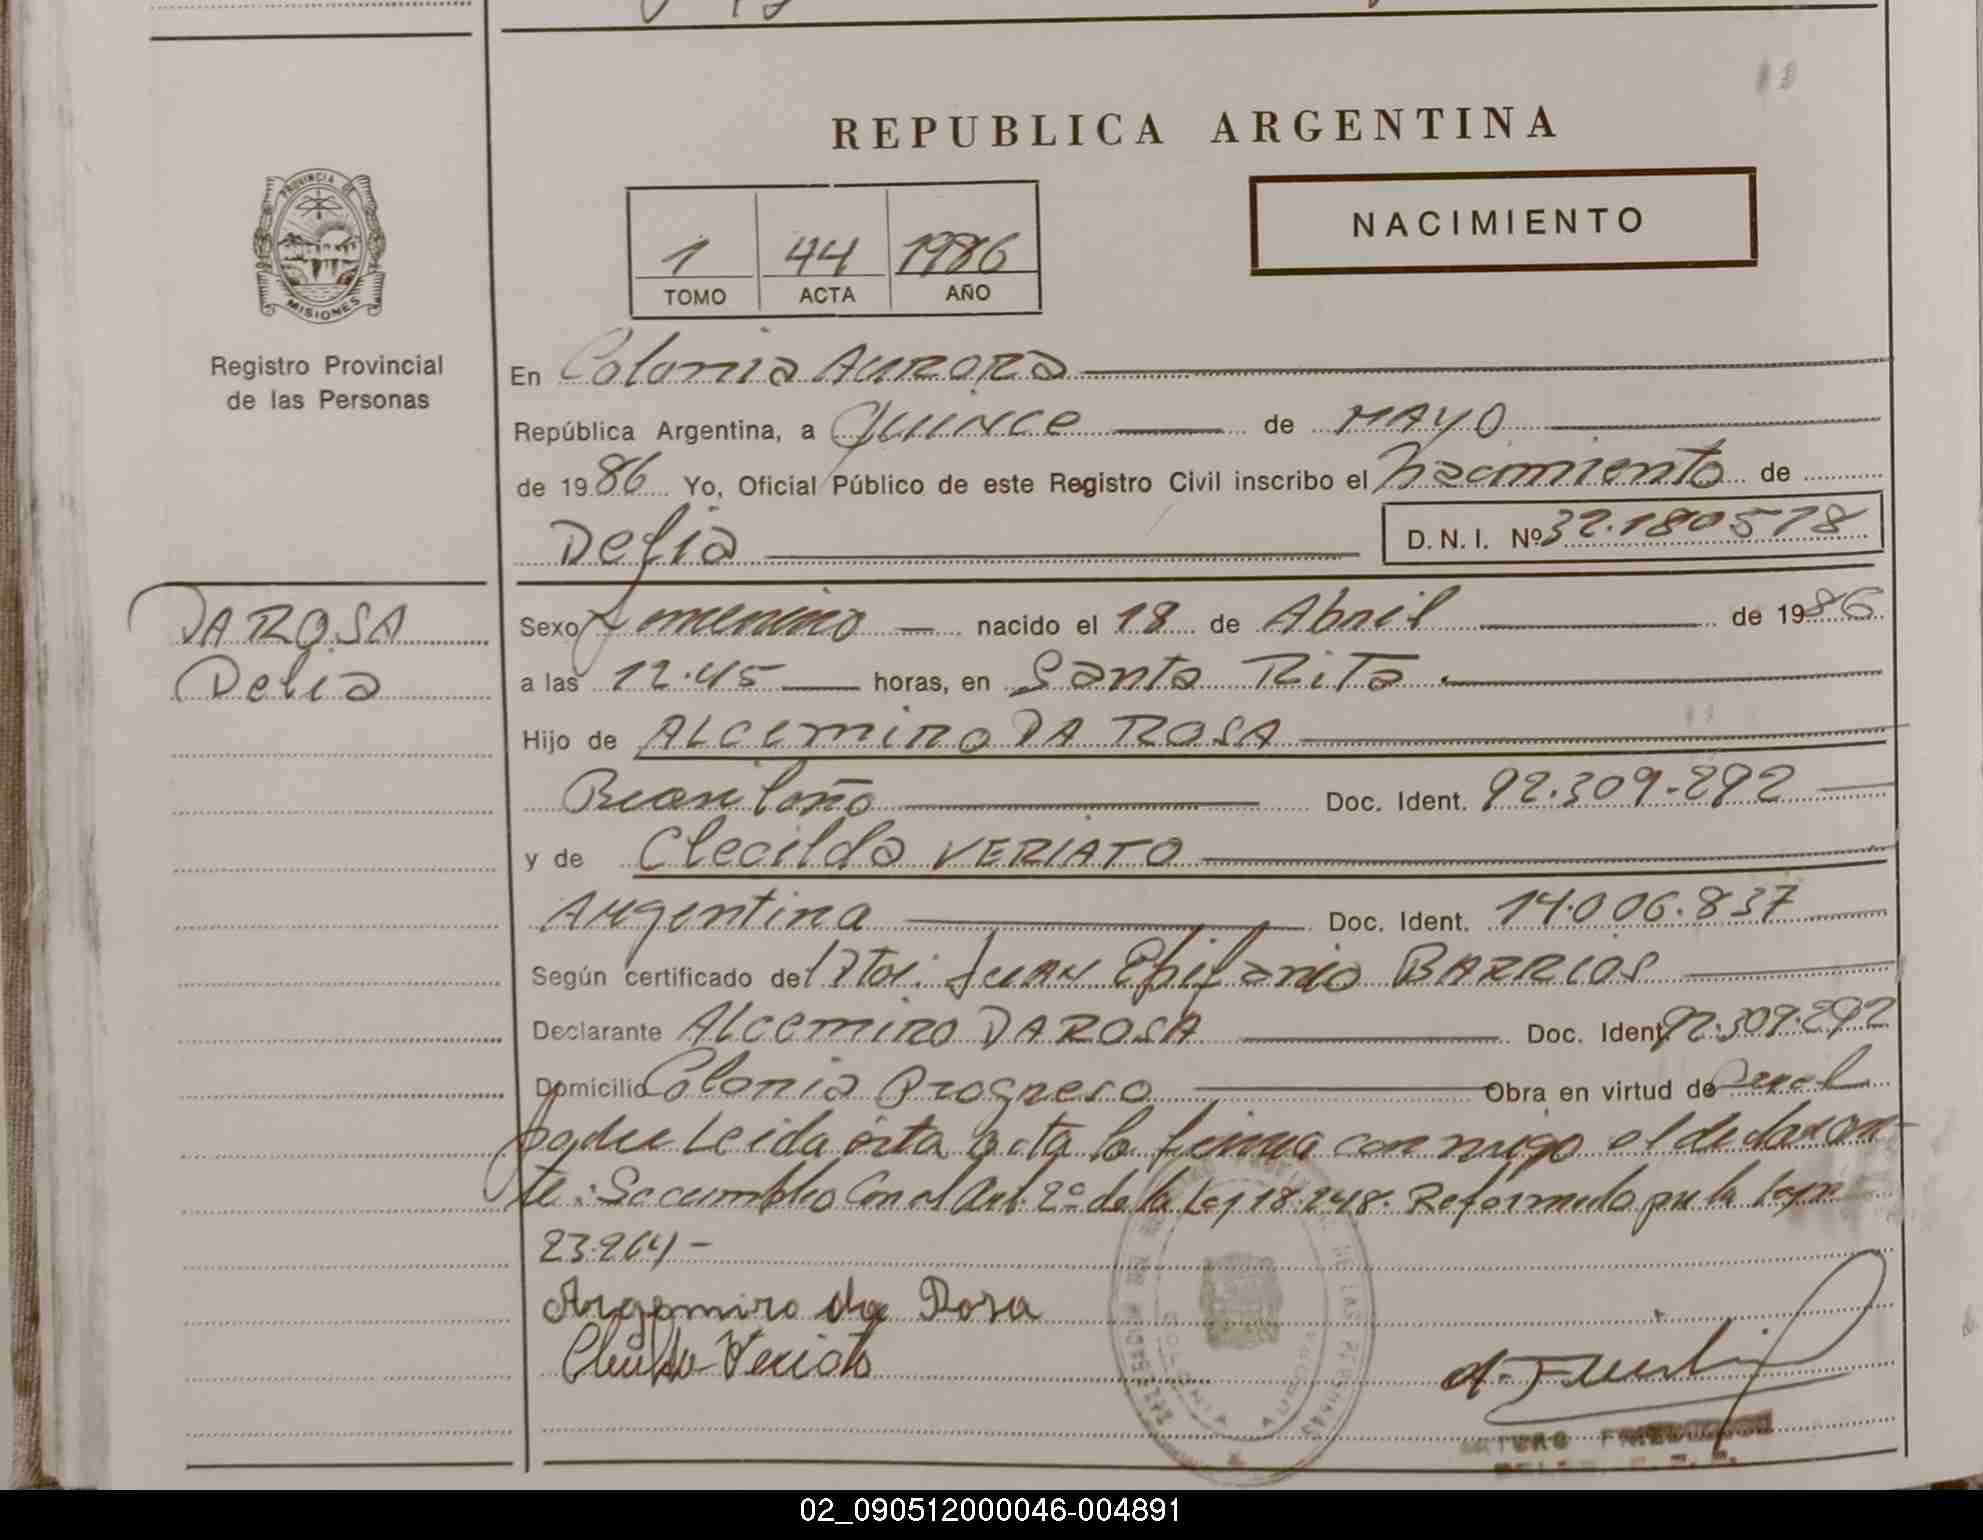 REPUBLICA ARGENTINA
NACIMIENTO
1 44 1986
TOMO ACTA AÑO
PROVINCIA DE
MISIONES
Registro Provincial
de las Personas
En Colonia AURORA
República Argentina, a QUINCE de MAYO
de 1986 Yo, Oficial Público de este Registro Civil inscribo el Nacimiento de
Delia D.N.I. Nº 32.180578
DA ROSA
Delia
Sexo femenino nacido el 18 de Abril de 1986
a las 12.45 horas, en Santa Rita.
Hijo de ALCEMIRO DA ROSA
Brasileño Doc. Ident. 92.309.292
y de Clecilda VERIATO
Argentina Doc. Ident. 14.006.837
Según certificado del Dtor: JUAN BARRIOS
Declarante ALCEMIRO DA ROSA Doc. Ident. 92.309.292
Domicilio Colonia Progreso Obra en virtud de ser el
padre Leida esta acta la firma con migo el declaran-
te: Se cumplio Con el Art. 2º de la Ley 18.248. Reformado por la Ley nº
23.264-
Argemiro da Rosa
Veriato
COLONIA AURORA
DE LAS PERSONAS
ARTURO
02_090512000046-004891